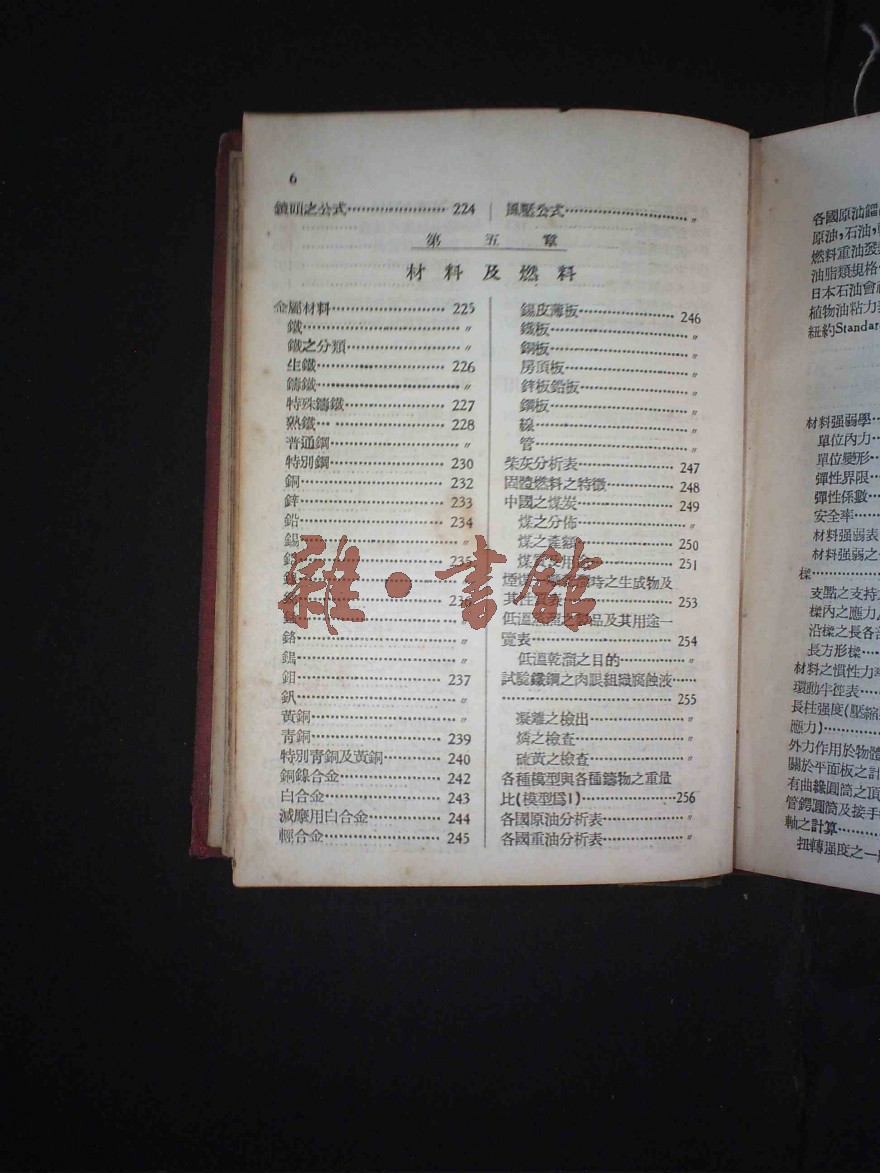 6
鎮頭之公式 224
風壓公式 〃
第五章
材料及燃料
金屬材料 225
鐵 〃
鐵之分類 〃
生鐵 226
鑄鐵 〃
特殊鑄鐵 227
熟鐵 228
普通鋼 〃
特別鋼 230
銅 232
鋅 233
鉛 234
錫 〃
235
236
鉻 〃
鎢 〃
鉬 237
釩 〃
黃銅 〃
青銅 239
特別青銅及黃銅 240
銅鎳合金 242
白合金 243
減摩用白合金 244
輕合金 245
錫皮薄板 246
鐵板 〃
銅板 〃
房頂板 〃
鋅板鉛板 〃
鋼板 〃
線 〃
管 〃
柴灰分析表 247
固體燃料之特徵 248
中國之煤炭 249
煤之分佈 〃
煤之產額 250
煤質及用途 251
時之生成物及
253
低溫 品及其用途一
覽表 254
低溫乾溜之目的 〃
試驗鐵鋼之肉眼組織腐蝕液
255
凝離之檢出 〃
燐之檢查 〃
硫黃之檢查 〃
各種模型與各種鑄物之重量
比(模型爲1) 256
各國原油分析表 〃
各國重油分析表 〃
雜·書館
各國原油
原油,石油,
燃料重油發
油脂類規格
日本石油會
植物油粘力
紐約Standar
材料强弱學
單位內力
單位變形
彈性界限
彈性係數
安全率
材料强弱表
材料强弱之
樑
支點之支持
樑內之應力
沿樑之長各
長方形樑
材料之慣性力
環動半徑表
長柱强度(壓縮
應力)
外力作用於物體
關於平面板之計
有曲緣圓筒之頂
管鍔圓筒及接手
軸之計算
扭轉强度之一